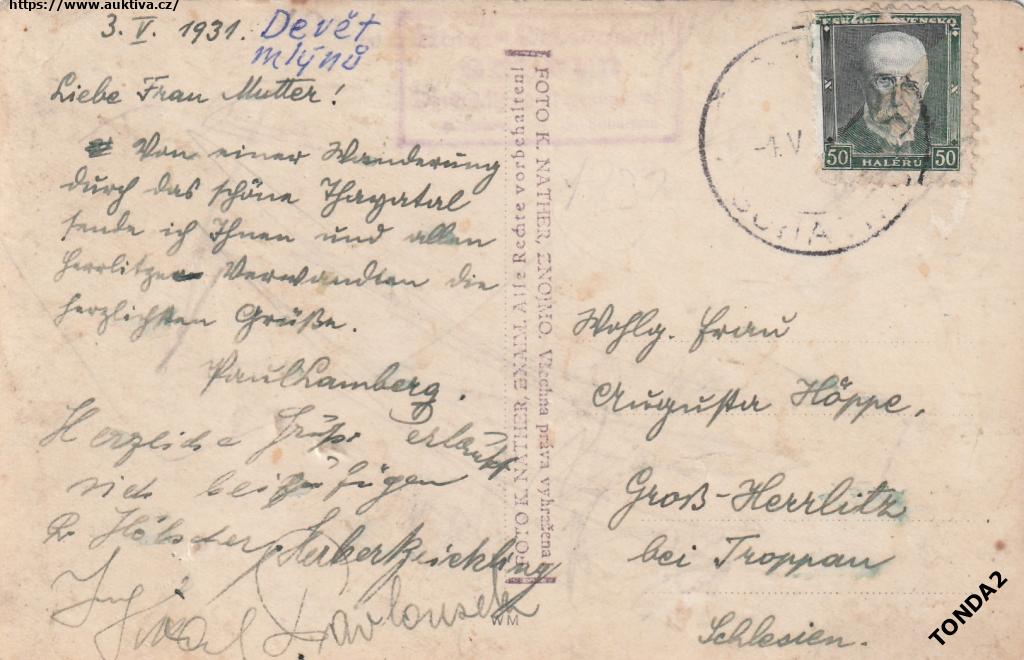 https://www.auktiva.cz/
3. V. 1931. Devět
mlýnů
Liebe Frau Mutter!
Von einer Wanderung
durch das schöne Thayatal
sende ich Ihnen und allen
Herrlitzer Verwandten die
herzlichsten Grüße.
Paul Lamberg.
Herzliche Grüße erlaubt
sich beizufügen
Herbert
FOTO K. NATHER, ZNAIM. Alle Rechte vorbehalten!
FOTO K. NATHER, ZNOJMO. Všechna práva vyhražena
WM
ČESKOSLOVENSKO
50 HALÉŘŮ 50
V
Wohlg. Frau
Augusta Höppe.
Groß-Herrlitz
bei Troppau
Schlesien.
TONDA2